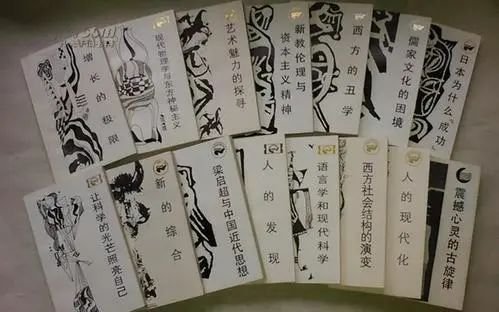 增长的极限
现代物理学与东方神秘主义
艺术魅力的探寻
新教伦理与
资本主义精神
西方的丑学
儒家文化的困境
日本为什么“成功”
让科学的光芒照亮自己
新的综合
梁启超与中国近代思想
人的发现
语言学和现代科学
西方社会结构的演变
人的现代化
震撼心灵的古旋律